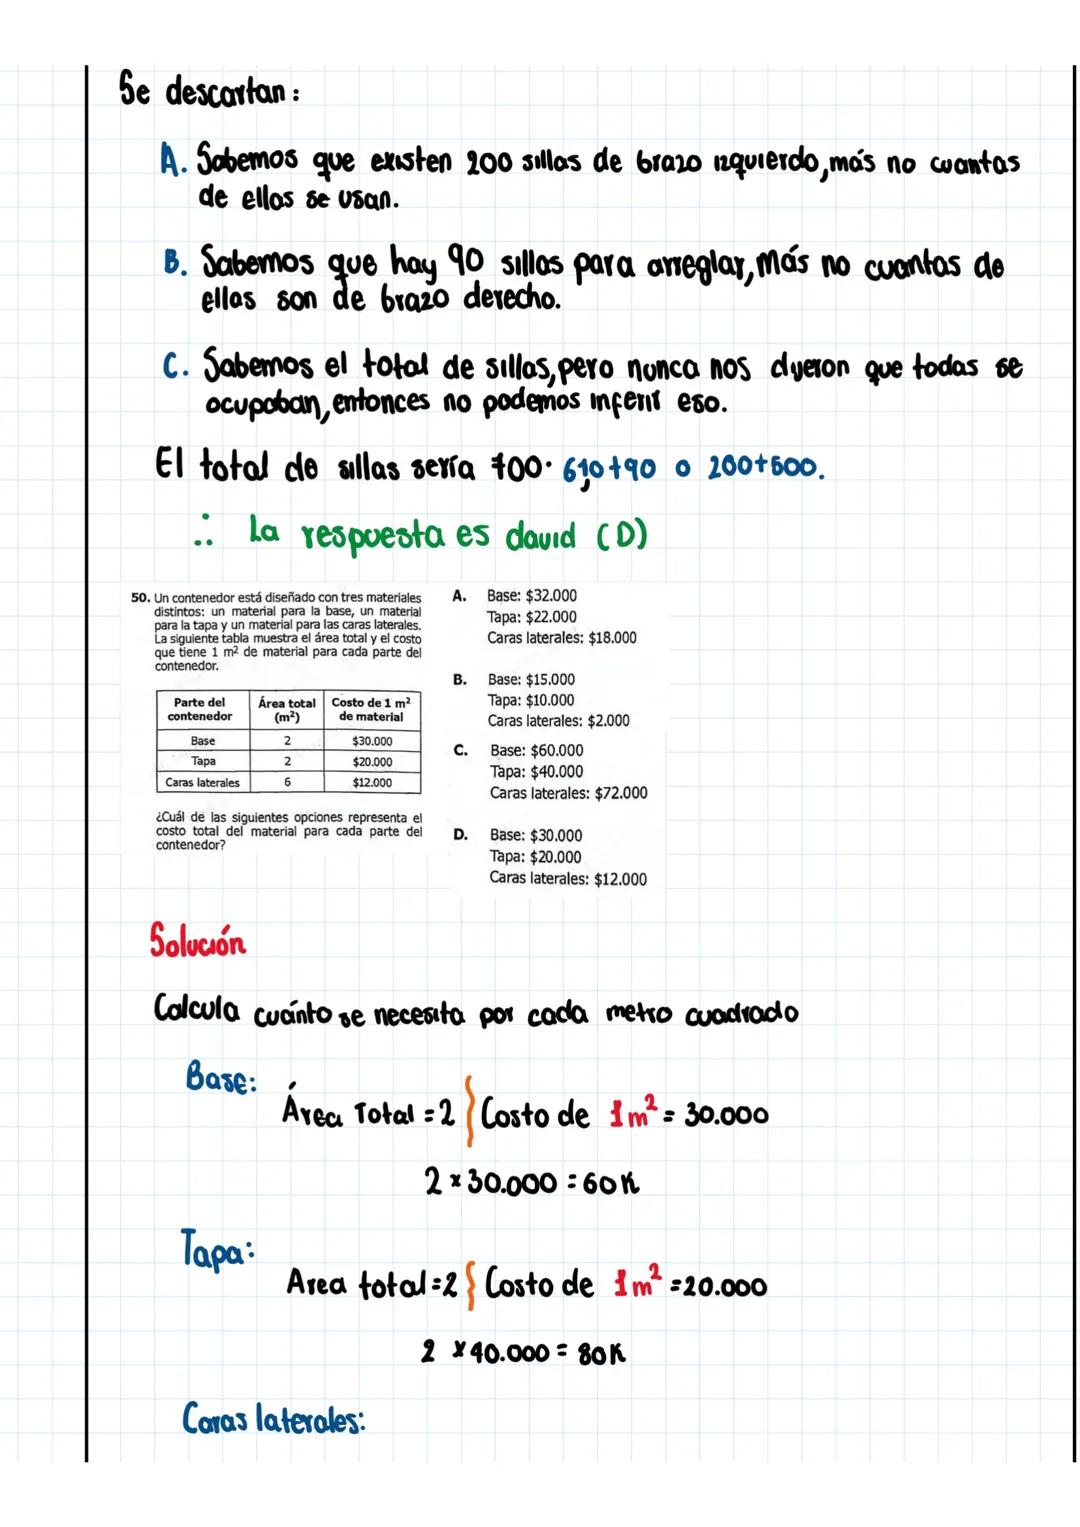 Se descartan:
A. Sabemos que existen 200 sillas de brazo izquierdo, más no cuantas
de ellas se usan.
B. Sabemos que hay 90 sillas para arreglar, más no cuantas de
ellas son de brazo derecho.
C. Sabemos el total de sillas, pero nunca nos dijeron que todas se
ocupaban, entonces no podemos inferir eso.
El total de sillas sería 700. 610+90 o 200+500.
∴ La respuesta es david (D)
50. Un contenedor está diseñado con tres materiales
distintos: un material para la base, un material
para la tapa y un material para las caras laterales.
La siguiente tabla muestra el área total y el costo
que tiene 1 m² de material para cada parte del
contenedor.
Parte del contenedor Área total (m²) Costo de 1 m² de material
Base 2 $30.000
Tapa 2 $20.000
Caras laterales 6 $12.000
¿Cuál de las siguientes opciones representa el
costo total del material para cada parte del
contenedor?
A. Base: $32.000
Tapa: $22.000
Caras laterales: $18.000
B. Base: $15.000
Tapa: $10.000
Caras laterales: $2.000
C. Base: $60.000
Tapa: $40.000
Caras laterales: $72.000
D. Base: $30.000
Tapa: $20.000
Caras laterales: $12.000
Solución
Calcula cuánto se necesita por cada metro cuadrado
Base:
Área Total = 2 } Costo de 1m² = 30.000
2 × 30.000 = 60K
Tapa:
Area total = 2 } Costo de 1m² = 20.000
2 × 40.000 = 80K
Caras laterales: